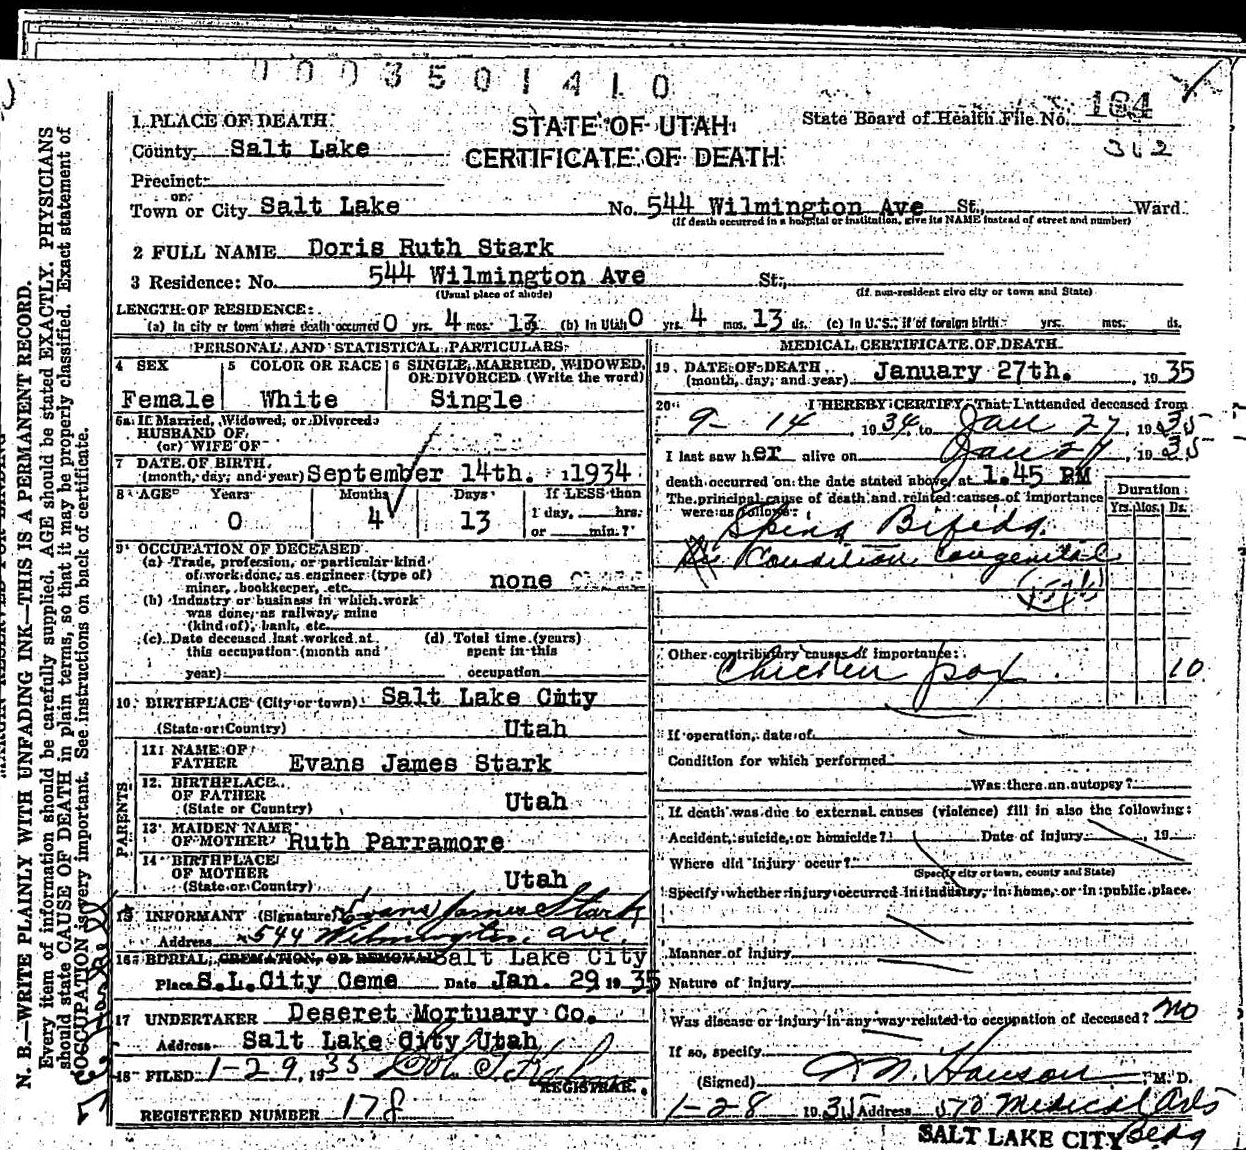 0003501410
1 PLACE OF DEATH
STATE OF UTAH
State Board of Health File No. 184
County Salt Lake
CERTIFICATE OF DEATH
312
Precinct
or
Town or City Salt Lake No. 544 Wilmington Ave St., Ward
(If death occurred in a hospital or institution, give its NAME instead of street and number)
2 FULL NAME Doris Ruth Stark
3 Residence: No. 544 Wilmington Ave St.,
(Usual place of abode) (If non-resident give city or town and State)
LENGTH OF RESIDENCE:
(a) In city or town where death occurred 0 yrs. 4 mos. 13 ds. (b) In Utah 0 yrs. 4 mos. 13 ds. (c) In U.S., if of foreign birth yrs. mos. ds.
PERSONAL AND STATISTICAL PARTICULARS
4 SEX 5 COLOR OR RACE 6 SINGLE, MARRIED, WIDOWED, OR DIVORCED (Write the word)
Female White Single
6a If Married, Widowed, or Divorced
HUSBAND OF
(or) WIFE OF
7 DATE OF BIRTH
(month, day, and year) September 14th. 1934
8 AGE Years Months Days If LESS than
0 4 13 1 day, hrs.
or min.?
9 OCCUPATION OF DECEASED
(a) Trade, profession, or particular kind
of work done, as engineer (type of)
miner, bookkeeper, etc. none
(b) Industry or business in which work
was done, as railway, mine
(kind of), bank, etc.
(c) Date deceased last worked at (d) Total time (years)
this occupation (month and spent in this
year) occupation
10 BIRTHPLACE (City or town) Salt Lake City
(State or Country) Utah
PARENTS
11 NAME OF
FATHER Evans James Stark
12 BIRTHPLACE
OF FATHER
(State or Country) Utah
13 MAIDEN NAME
OF MOTHER Ruth Parramore
14 BIRTHPLACE
OF MOTHER
(State or Country) Utah
15 INFORMANT (Signature) Evans James Stark
Address 544 Wilmington Ave.
16 BURIAL, CREMATION, OR REMOVAL Salt Lake City
Place S.L.City Ceme Date Jan. 29 1935
17 UNDERTAKER Deseret Mortuary Co.
Address Salt Lake City Utah
18 FILED 1-29, 1935
REGISTRAR.
REGISTERED NUMBER 178
MEDICAL CERTIFICATE OF DEATH
19 DATE OF DEATH
(month, day, and year) January 27th. , 1935
20 I HEREBY CERTIFY, That I attended deceased from
9 - 14, 1934, to Jan 27, 1935
I last saw her alive on Jan 27, 1935
death occurred on the date stated above, at 1.45 PM
The principal cause of death and related causes of importance
were as follows: Duration
Yrs. Mos. Ds.
Spina Bifida.
Condition Congenital
Other contributory causes of importance:
Chicken pox 10
If operation, date of
Condition for which performed
Was there an autopsy?
If death was due to external causes (violence) fill in also the following:
Accident, suicide, or homicide? Date of injury , 19
Where did injury occur?
(Specify city or town, county and State)
Specify whether injury occurred in industry, in home, or in public place.
Manner of injury
Nature of injury
Was disease or injury in any way related to occupation of deceased? no
If so, specify
(Signed) Hanson, M. D.
1-28 1935 Address 510 Medical Arts
SALT LAKE CITY Bldg
N. B.—WRITE PLAINLY WITH UNFADING INK—THIS IS A PERMANENT RECORD.
Every item of information should be carefully supplied. AGE should be stated EXACTLY. PHYSICIANS
should state CAUSE OF DEATH in plain terms, so that it may be properly classified. Exact statement of
OCCUPATION is very important. See instructions on back of certificate.